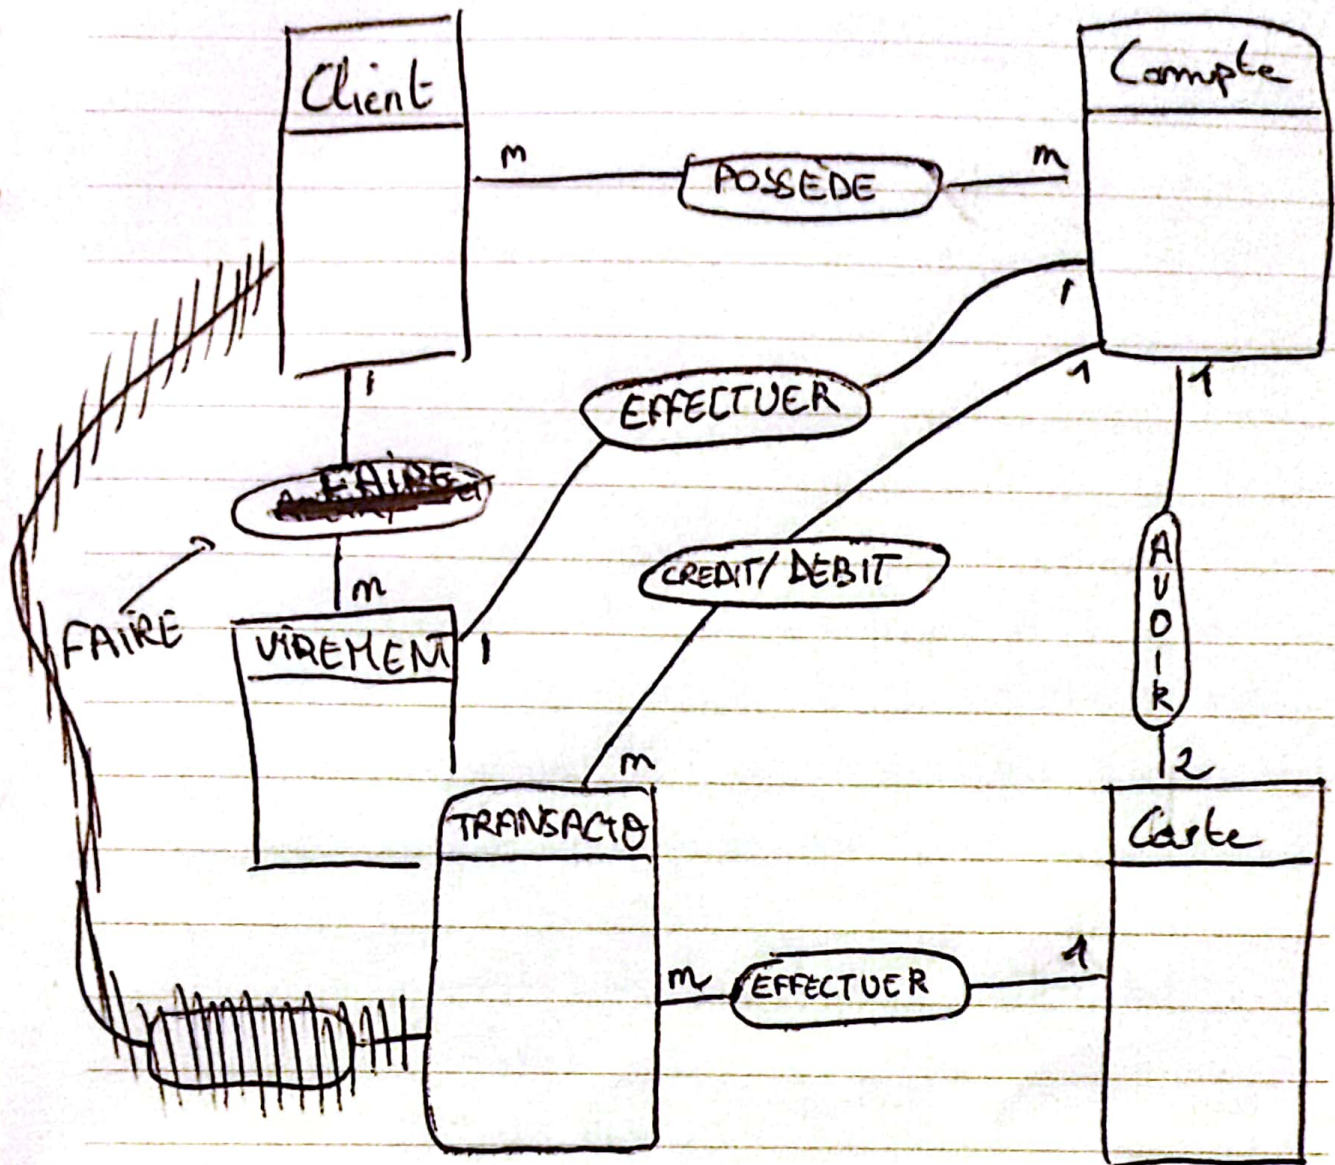 Client
Compte
m
POSSÈDE
m
1
1
EFFECTUER
1
1
FAIRE
CREDIT/DEBIT
AVOIR
m
FAIRE
VIREMENT
1
m
2
TRANSACTO
Carte
m
EFFECTUER
1